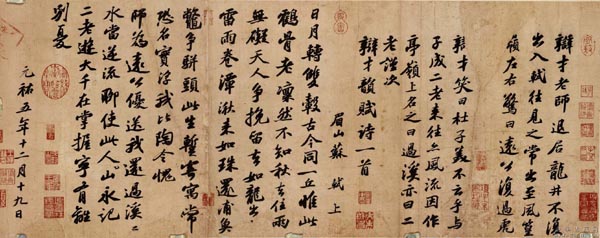 辯才老師退居龍井不復
出入軾往見之常出至風篁
嶺左右驚曰遠公復過虎
辯才笑曰杜子美不云乎與
子成二老來往亦風流因作
亭嶺上名之曰過溪亦曰二
老謹次
辯才韻賦詩一首
眉山蘇軾上
日月轉雙轂古今同一丘惟此
鶴骨老凜然不知秋去住兩
無礙天人爭挽留去如龍出
雷雨卷潭湫來如珠還浦魚
鼈爭駢頭此生暫寄寓常
恐名實浮我比陶令愧
師為遠公優送我還過溪溪
水當逆流聊使此人山永記
二老遊大千在掌握寧有離
別憂
元祐五年十二月十九日